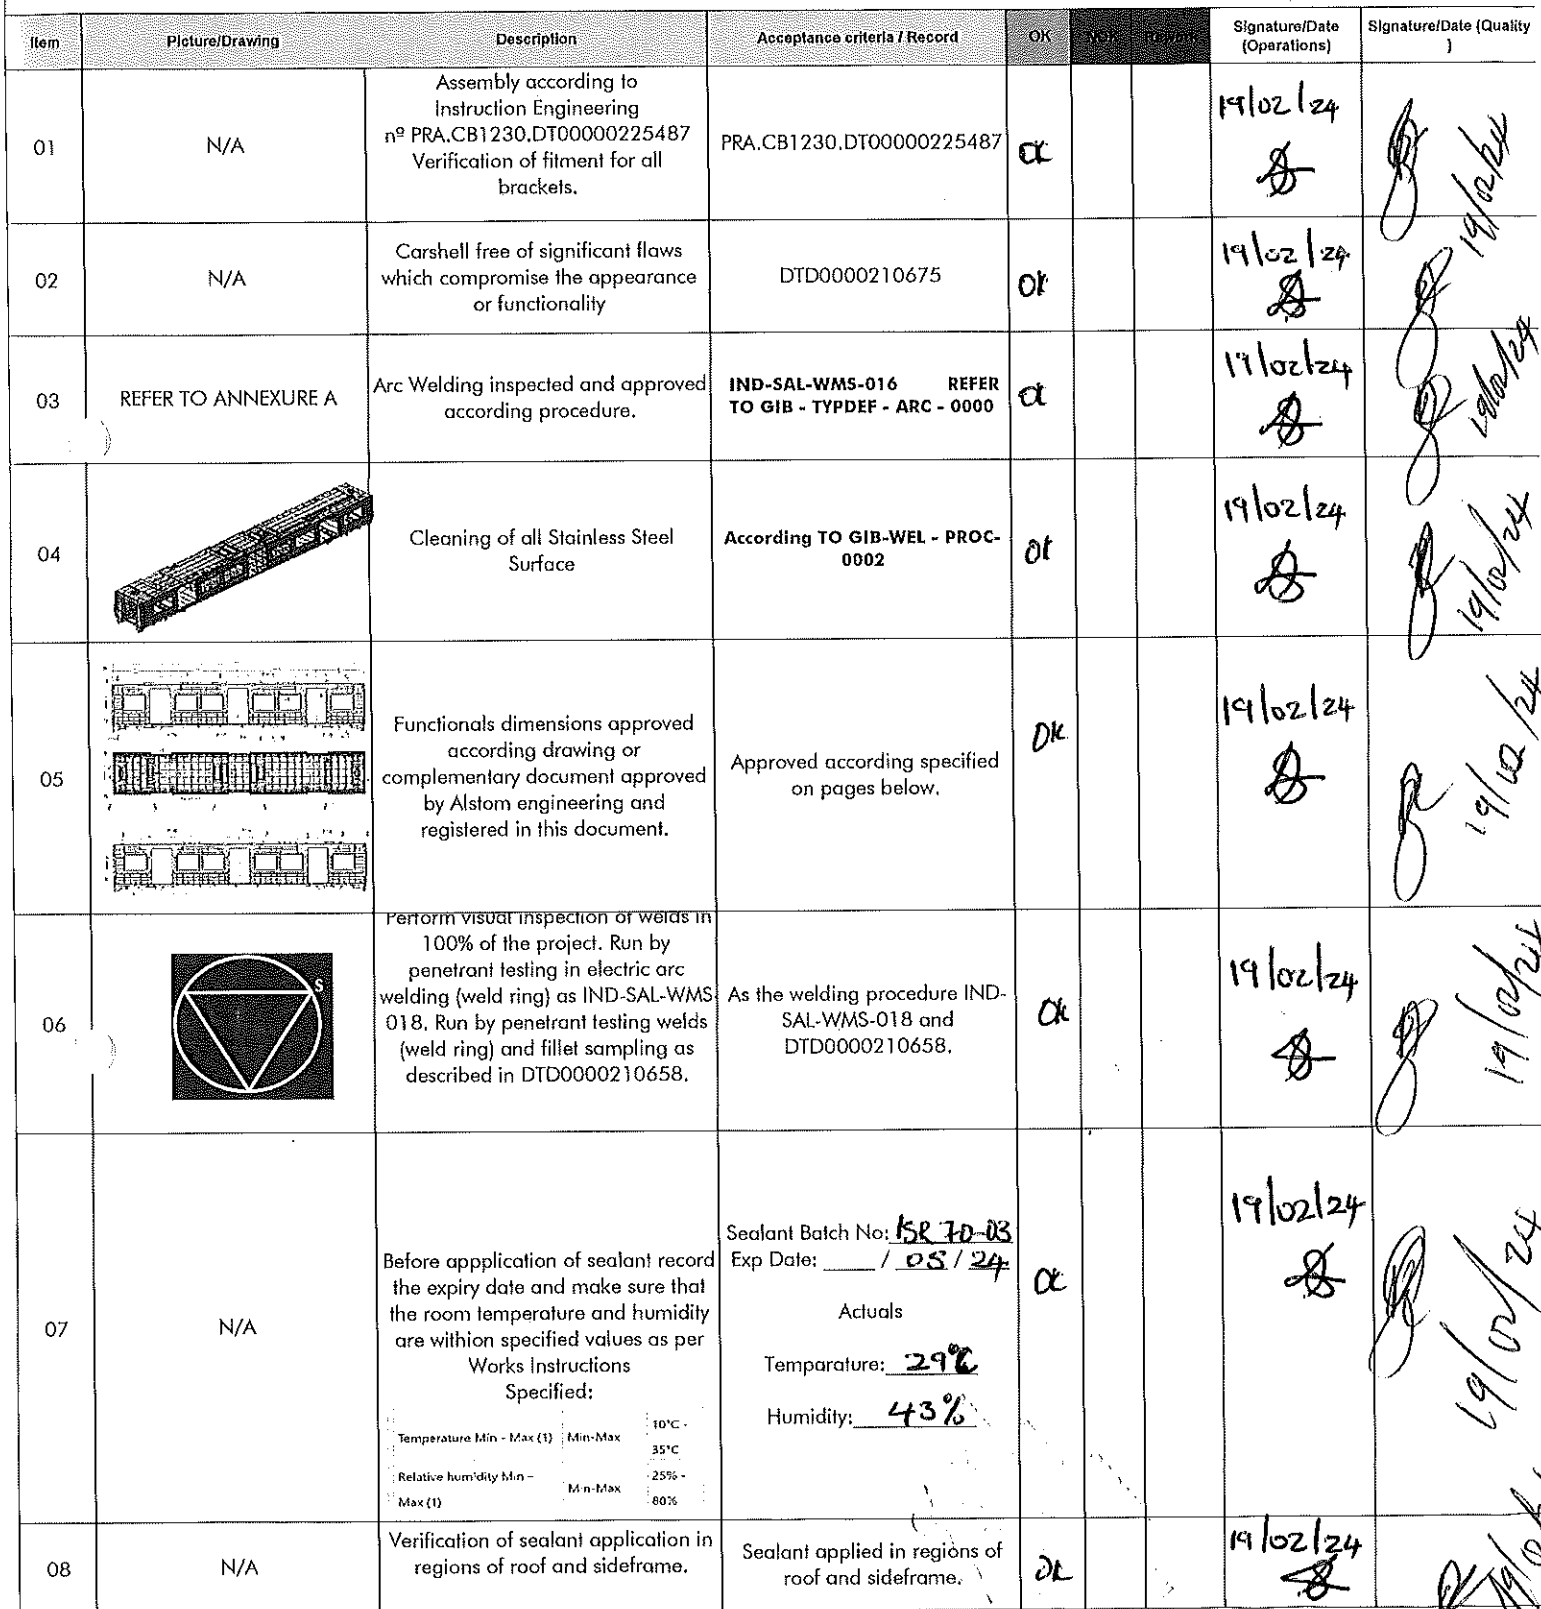 Item Picture/Drawing Description Acceptance criteria / Record OK NOK Rework Signature/Date (Operations) Signature/Date (Quality )
01
N/A
Assembly according to
Instruction Engineering
nº PRA.CB1230.DT00000225487
Verification of fitment for all
brackets.
PRA.CB1230.DT00000225487
OK
19/02/24
19/02/24
02
N/A
Carshell free of significant flaws
which compromise the appearance
or functionality
DTD0000210675
OK
19/02/24
03
REFER TO ANNEXURE A
Arc Welding inspected and approved
according procedure.
IND-SAL-WMS-016 REFER
TO GIB - TYPDEF - ARC - 0000
OK
19/02/24
19/02/24
04
Cleaning of all Stainless Steel
Surface
According TO GIB-WEL - PROC-
0002
OK
19/02/24
19/02/24
05
Functionals dimensions approved
according drawing or
complementary document approved
by Alstom engineering and
registered in this document.
Approved according specified
on pages below.
OK
19/02/24
19/02/24
06
S
Perform visual inspection of welds in
100% of the project. Run by
penetrant testing in electric arc
welding (weld ring) as IND-SAL-WMS
018. Run by penetrant testing welds
(weld ring) and fillet sampling as
described in DTD0000210658.
As the welding procedure IND-
SAL-WMS-018 and
DTD0000210658.
OK
19/02/24
19/02/24
07
N/A
Before appplication of sealant record
the expiry date and make sure that
the room temperature and humidity
are withion specified values as per
Works Instructions
Specified:
Temperature Min - Max (1) Min-Max 10°C -
35°C
Relative humidity Min –
Max (1) Min-Max 25% -
80%
Sealant Batch No: ISR 70-03
Exp Date: ____ / 05 / 24
Actuals
Temparature: 29°C
Humidity: 43%
OK
19/02/24
19/02/24
08
N/A
Verification of sealant application in
regions of roof and sideframe.
Sealant applied in regions of
roof and sideframe.
OK
19/02/24